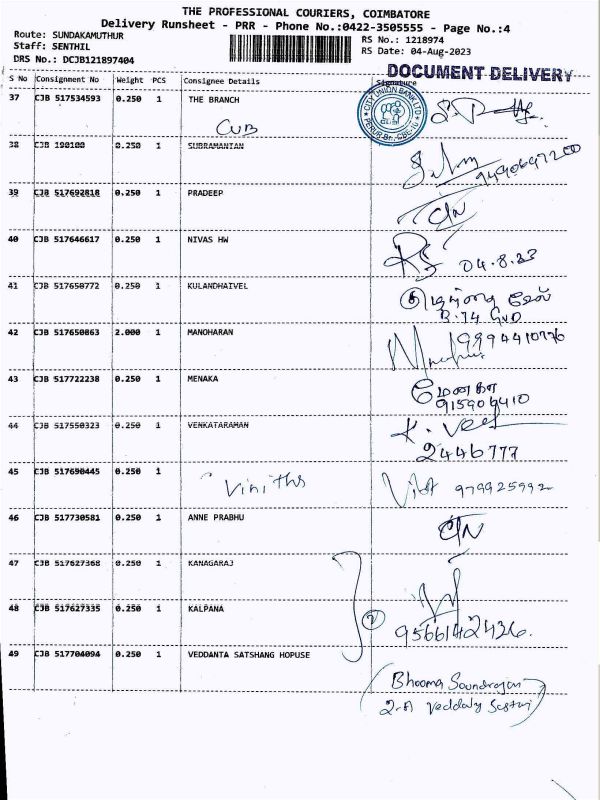 THE PROFESSIONAL COURIERS, COIMBATORE
Delivery Runsheet - PRR - Phone No.:0422-3505555 - Page No.:4
Route: SUNDAKAMUTHUR
RS No.: 1218974
Staff: SENTHIL
RS Date: 04-Aug-2023
DRS No.: DCJB121897404
DOCUMENT DELIVERY
S No Consignment No Weight PCS Consignee Details Signature
37 CJB 517534593 0.250 1 THE BRANCH
CUB
CITY UNION BANK LTD
38 CJB 190100 0.250 1 SUBRAMANIAN
39 CJB 517692818 0.250 1 PRADEEP
C/N
40 CJB 517646617 0.250 1 NIVAS HW
04.8.23
41 CJB 517650772 0.250 1 KULANDHAIVEL
B.74 GVD
42 CJB 517650863 2.000 1 MANOHARAN
9994410776
43 CJB 517722238 0.250 1 MENAKA
மேனகா
44 CJB 517550323 0.250 1 VENKATARAMAN
2446777
45 CJB 517690445 0.250 1 Vinitha
979925992
46 CJB 517730581 0.250 1 ANNE PRABHU
C/N
47 CJB 517627368 0.250 1 KANAGARAJ
48 CJB 517627335 0.250 1 KALPANA
9566142426.
49 CJB 517704094 0.250 1 VEDDANTA SATSHANG HOPUSE
Bhooma Soundrajan
2-A